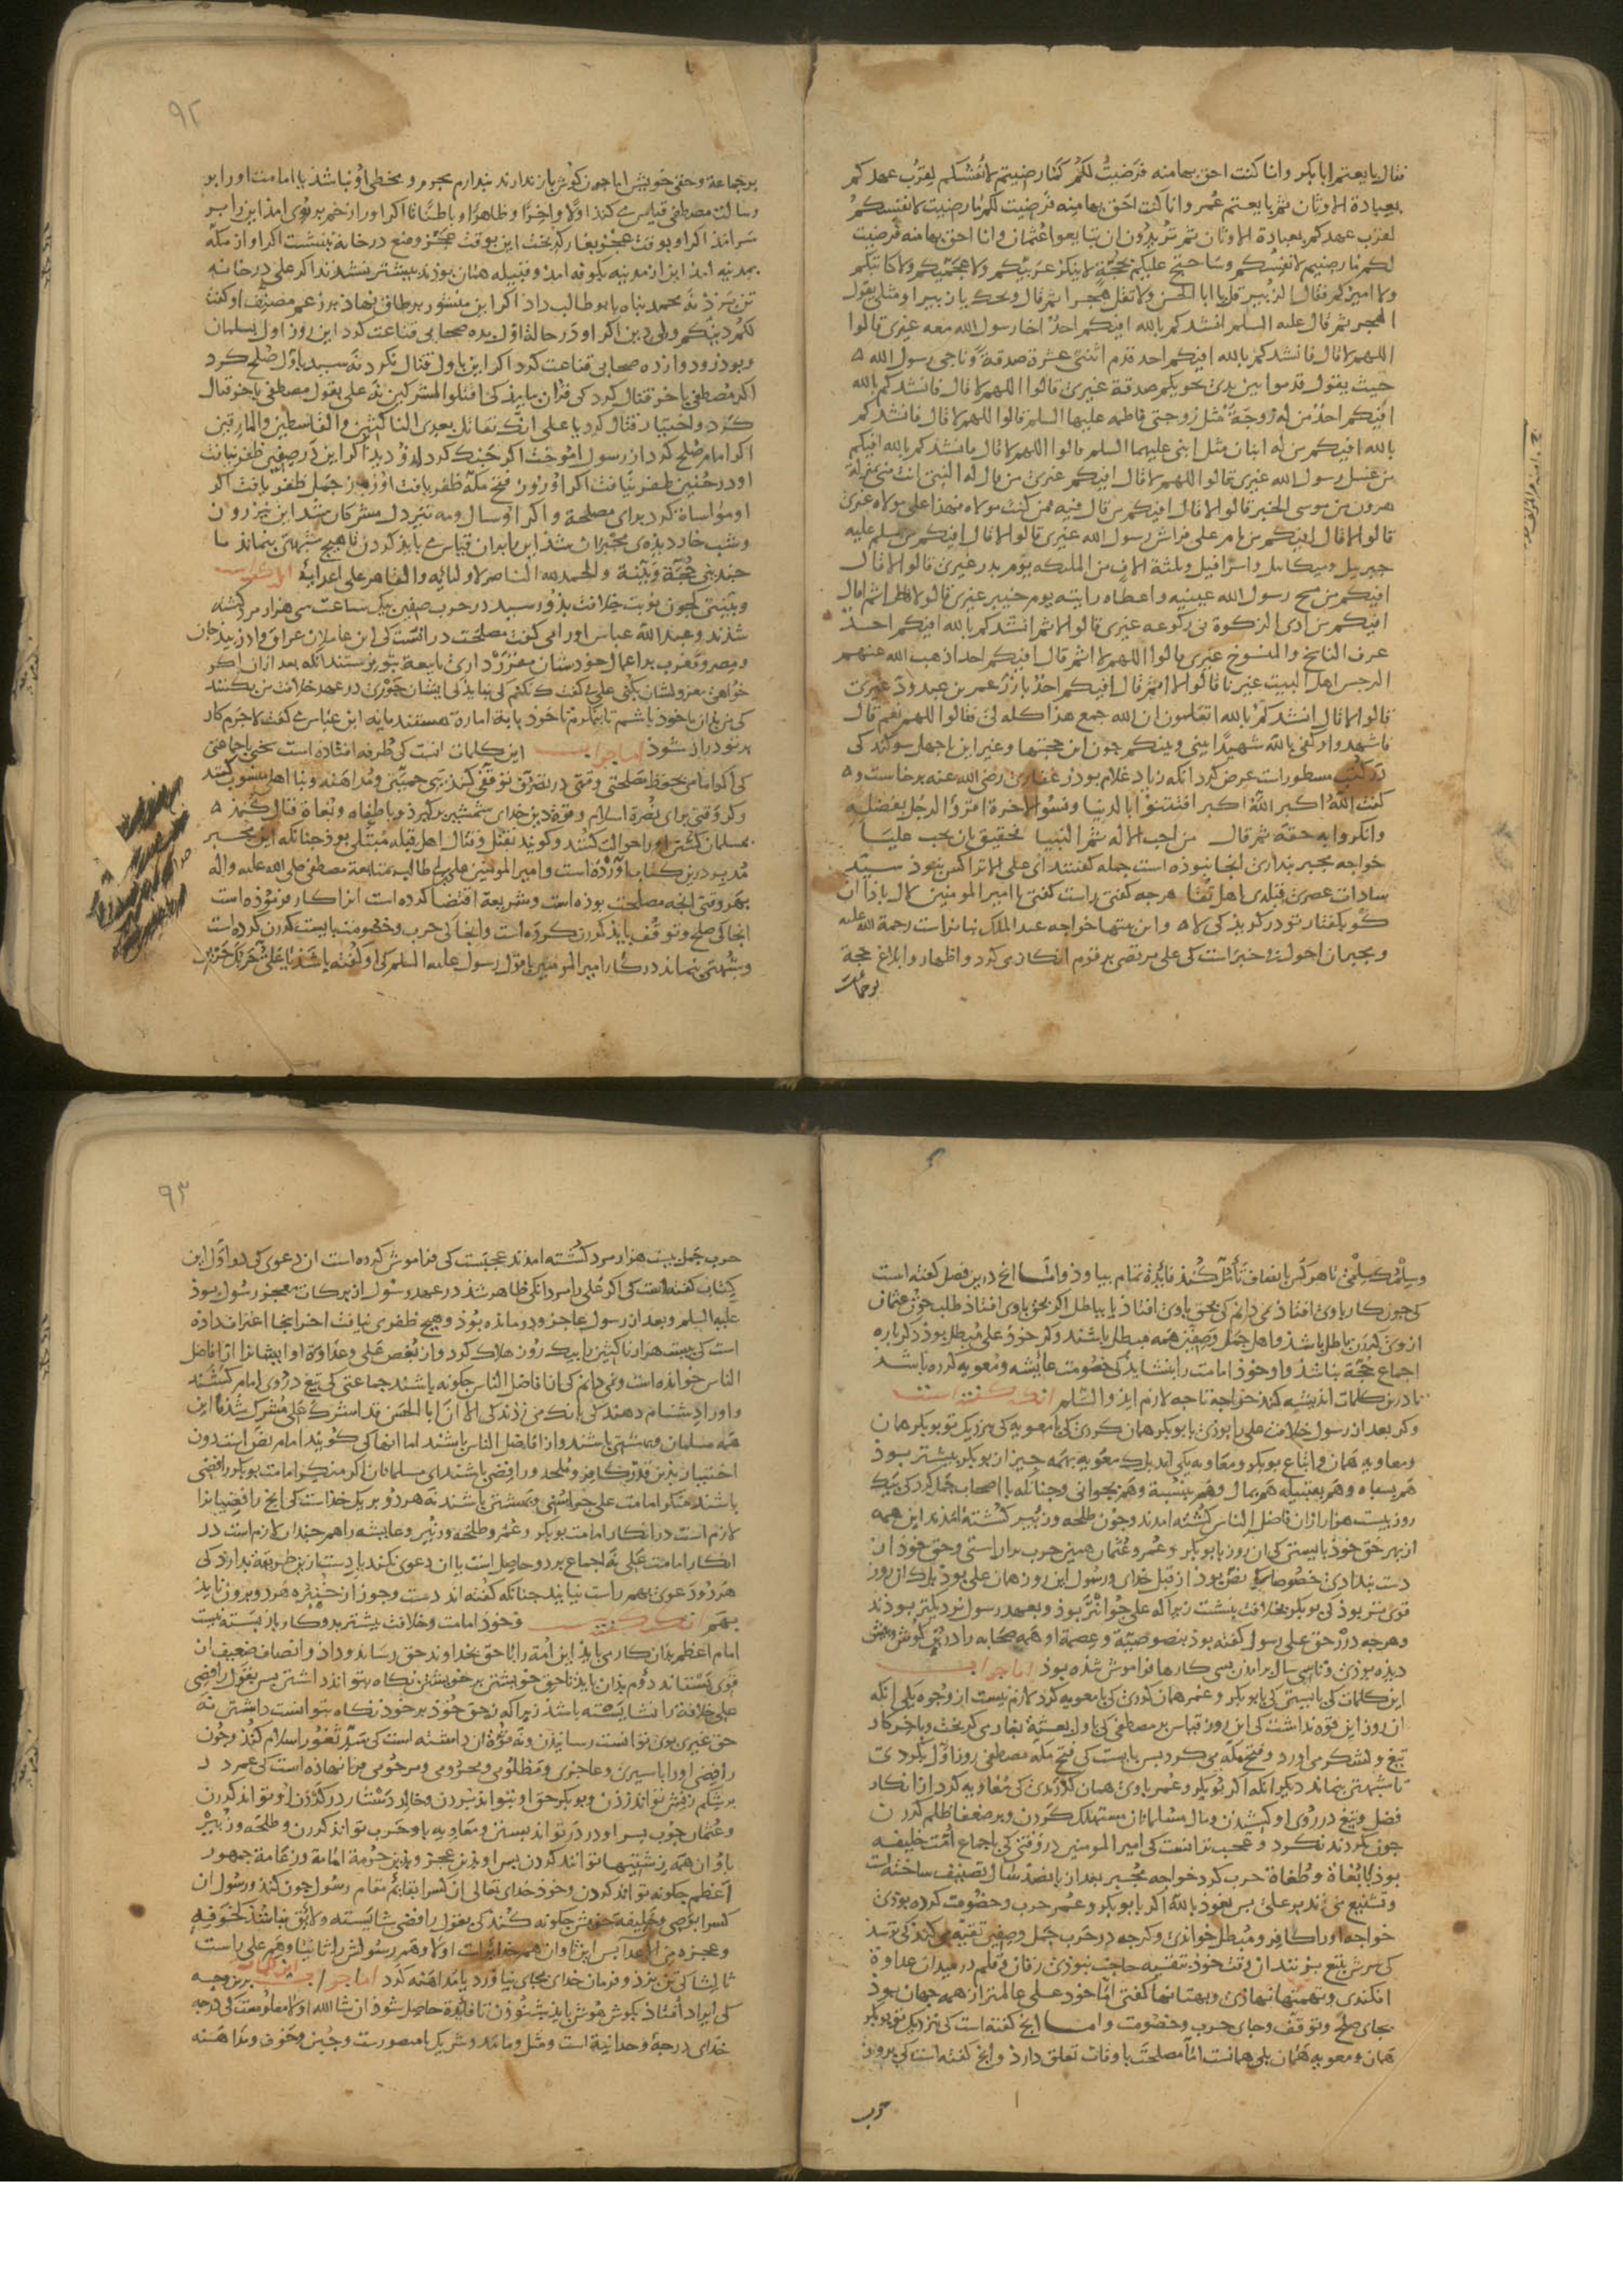 فقال بايعتم ابابكر وانا كنت احق بها منه فرضيت لكم كما رضيتم لانفسكم لقرب عهدكم
بعبادة الاوثان ثم بايعتم عمر وانا كنت احق بها منه فرضيت لكم ما رضيت لانفسكم
لقرب عهدكم بعبادة الاوثان ثم تريدون ان تبايعوا عثمان وانا احق بها منه فرضيت
لكم ما رضيتم لانفسكم وساحتج عليكم بحجة لا ينكر عربيكم ولا عجميكم ولا كاتبكم
ولا اميركم فقال الزبير قل يا ابا الحسن ولا تقل هجرا ثم قال ويحك يا زبير او مثلي يقول
الهجر ثم قال عليه السلم انشدكم بالله افيكم احد اخا رسول الله معه غيري قالوا
اللهم لا قال فانشدكم بالله افيكم احد قدم اثنتي عشرة صدقة وناجى رسول الله
حيث يقول قدموا بين يدي نجويكم صدقة غيري قالوا اللهم لا قال فانشدكم بالله
افيكم احد من له زوجة مثل زوجتي فاطمه عليها السلم قالوا اللهم لا قال فانشدكم
بالله افيكم من له ابنان مثل ابني عليهما السلم قالوا اللهم لا قال فانشدكم بالله افيكم
من غسل رسول الله غيري قالوا اللهم لا قال افيكم غيري من قال له النبي انت مني بمنزلة
هرون من موسى الخبر قالوا لا قال افيكم من قال فيه فمن كنت مولاه فهذا علي مولاه غيري
قالوا لا قال افيكم من نام على فراش رسول الله غيري قالوا لا قال افيكم من سلم عليه
جبريل وميكائيل واسرافيل وثلثة الاف من الملئكه يوم بدر غيري قالوا لا قال
افيكم من مسح رسول الله عينيه واعطاه رايته يوم خيبر غيري قالوا لا ثم قال
افيكم من ادى الزكوة في ركوعه غيري قالوا لا ثم انشدكم بالله افيكم احد
عرف الناسخ والمنسوخ غيري قالوا اللهم لا ثم قال افيكم احد اذهب الله عنهم
الرجس اهل البيت غيرنا قالوا لا ثم قال افيكم احد بارز عمر بن عبدود غيري
قالوا لا قال انشدكم بالله اتعلمون ان الله جمع هذا كله لي فقالوا اللهم نعم قال
فاشهدوا وكفى بالله شهيدا بيني وبينكم چون اين حجتها وغير اين با جهل سوكند كى
در كتب مسطورست عرض كرد انكه زياد غلام بوذر غفاري رضي الله عنه برخاست و
كفت الله اكبر الله اكبر افتتنوا بالدنيا ونسوا الاخرة اعزوا الرجل بفضله
وانكروا به حقه ثم قال من احب الاله ثم النبيا فحقيق بان يحب عليا
خواجه مجبر پنداري انجا نبوذه است جمله كفتند اي علي الا تراكس نبوذ سيد
سادات عصري قبله‌ي اهل تقا هرچه كفتي راست كفتي يا امير المومنين لال باذا ان
كو بكفتار تو در كويذ كي لا و اين بيتها خواجه عبد الملك بنانراست رحمة الله عليه
وبجيران احولت خبراست كى على مرتضى بر قوم انكاري كرد و اظهار وابلاغ حجة
بر جماعت
۹۲
بر جماعة وحق خويش اما چون كوش باز ندارند پندارم مجرم و مخطى او نباشذ با امامت اورا بر
رسالت مصطفى قياس مى كند اولا واخرا و ظاهرا و باطنا تا اكر اورا زخم بر روى امذ اين را بر
سر امذ اكر او بوقت عجز بغار كريخت اين بوقت عجز و منع در خانه بنشست اكر او از مكه
بمدينه امذ اين از مدينه بكوفه امذ و قبيله هنان بوذند بيشتر نشدند اكر علي در خانه
تن بزذ نه محمد پناه با بوطالب داد اكر اين منشور بر طاق نهاذ بر زعم مصنف او كفت
لكم دينكم ولي دين اكر او در حالة اول بده صحابى قناعت كرد اين روز اول بسلمان
وبوذر و دوازده صحابى قناعت كرد اكر اين باول قتال نكرد نه سيد باول صلح كرد
اكر مصطفى باخر قتال كرد كى قران بيامد كى اقتلوا المشركين نه على بقول مصطفى باخر قتال
كرد و اختيار قتال كرد يا على انك تقاتل بعدي الناكثين والقاسطين والمارقين
اكر امام صلح كرد از رسول اموخت اكر جنك كرد ازو ديد اكر اين در صفين ظفر نيافت
او در حنين ظفر نيافت اكر او روز فتح مكه ظفر يافت او روز جمل ظفر يافت اكر
او مواساة كرد براى مصلحة و اكر او سال و مه تير دل مشركان شذ اين نيز روز
وشب خار ديده‌ي مجبران شذ اين با بران قياس مى بايذ كردن تا هيچ شبهتى بنماند با
چندين حجة و بينة والحمد لله الناصر لاوليائه والقاهر على اعدائه انكه كفته است
وبينى كى چون نوبت خلافت بذو رسيد در حرب صفين بيك ساعت سى هزار مرد كشته
شذند و عبد الله عباس اورا مى كفت مصلحت درانست كى اين عاملان عراق و اذربيجان
ومصر و مغرب بر اعمال خودشان مقرر دارى تا بيعة بتو بفرستند انكه بعد ازان اكر
خواهى معزولشان بكنى على كفت نكنم كى نبايذ كى ايشان جوري در عهد خلافت من بكنند
كى من باز با خود باشم تا بنكرم تا خود پاية امارة هستند يا نه ابن عباس مى كفت لاجرم كار
بر تو دراز شود اما جواب اين كلمات انست كى طرفه افتاذه است سخن با جماعتى
كى اكر امامى بحفظ مصلحتى وقتى در تصرف توقفى كند بى حميتى و مداهنه و بنا اهلى منسوب كنند
وكر وقتى براى نصرة اسلام و قوة دين خداى شمشير بركيرد و با طغاه و بغاة قتال كند
بمسلمان كشتن اورا حوالت كنند و كويند بقتل و قتال اهل قبله مبتلى بوذ چنانكه اين مجبر
مدبر درين كتاب آورده است و امير المومنين علي بن ابي طالب بمتابعة مصطفى صلى الله عليه واله
بهر وقتى انچه مصلحت بوذه است وشريعة اقتضا كرده است انرا كار فرموذه است
انجا كى صلح و توقف بايذ كردن كرده است وانجا كى حرب و خصومت بايست كردن كرده است
وشبهتى بنماند در كار امير المومنين با قول رسول عليه السلم كى او كفته باشذ يا علي حربك حربي
وسلمك سلمي تا هر كس بانصاف تأمل كند فايده تمام بيابذ واما انچ درين فصل كفته است
كى چون كار باوى افتاذ نمى دانم كى بحق باوى افتاذ يا بباطل اكر بحق باوى افتاذ طلب خون عثمان
ازوى كردن باطل باشذ و اهل جمل و صفين همه مبطل باشند وكر خود على مبطل بوذ دكر باره
اجماع حجة نباشذ و او خود امامت را بنشايذ كى خصومت عايشه و معويه كرده باشد
تا درين كلمات انديشه كند خواجه تا چه لازم ايذ والسلم انكه كفته است
وكر بعد از رسول خلافت على را بوذى با بوبكر همان كردى كى با معويه كى نزديك تو بوبكر همان
ومعاويه همان و اتباع بوبكر و معاويه يكى اند بلك معويه بهمه چيز از بوبكر بيشتر بوذ
هم بسپاه و هم بقبيله هم بمال و هم بنسبة و هم بجوانى و چنانكه با اصحاب جمل كرد كى بيك
روز بيست هزار ازان فاضل الناس كشته امدند و چون طلحه و زبير كشته امدند اين همه
از بهر حق خوذ بايستى كى ان روز با بوبكر و عمر و عثمان همين حرب براراستى وحق خود از
دست ندادى خصوصا كى نص بود از قبل خداى و رسول اين روز همان على بوذ بلك ان روز
قوى تر بوذ كى بوبكر بخلافت بنشست زيرا كه على جوانتر بوذ و بعهد رسول نزديكتر بوذند
وهرچه در حق على رسول كفته بوذ بنصوصية و عصمة او همه صحابه را در پيش كوش و پيش
ديده بوذى و تا سى سال برامذن بسى كارها فراموش شده بوذ اما جواب
اين كلمات كى بايستى كى با بوبكر و عمر همان كردى كى با معويه كرد لازم نيست از وجوه يكى انكه
ان روز اين قوه نداشت كى اين روز قياس بر مصطفى كى باول بعثة بغارى كريخت و باخر كار
تيغ و لشكر مى اورد و فتح مكه مى كرد پس بايست كى فتح مكه مصطفى روز اول بكردى
تا شبهتى بنماند ديكر انكه اكر بوبكر و عمر باوى همان كردندى كى معاويه كرد از انكار
فضل و تيغ در روى او كشيدن و مال مسلمانان مستهلك كردن و بر ضعفا ظلم كردن
چون نكردند نكرد و عجب تر انست كى امير المومنين در وقتى كى باجماع امت خليفه
بوذ با بغاة و طغاة حرب كرد خواجه مجبر بعد از پانصد سال تصنيف ساخته است
وتشنيع مى زند بر على پس نعوذ بالله اكر با بوبكر و عمر حرب و خصومت كرده بوذى
خواجه اورا كافر و مبطل خواندى وكرچه در حرب جمل و صفين تقيه مى كند كى ترسد
كى سرش بتيغ ببرند ان وقت خود بتقيه حاجت نبوذى زفان و قلم در ميدان عداوة
افكندى و تهمتها نهاذى و بهتانها كفتى اما خود على عالمتر از همه جهان بوذ
بجاى صلح و توقف و جاى حرب و خصومت واما انچ كفته است كى نزديك تو بوبكر
همان و معويه همان بلى همانست اما مصلحت باوقات تعلق دارذ و انچ كفته است كى بروز
حرب
۹۳
حرب جمل بيست هزار مرد كشته امدند عجبست كى فراموش كرده است ان دعوى كى در اول اين
كتاب كفته است كى اكر على را مردانكى ظاهر شذ در عهد رسول از بركات معجز رسول بوذ
عليه السلم وبعد از رسول عاجز و درمانده بوذ و هيچ ظفرى نيافت اخر اينجا اعتراف داده
است كى بيست هزار ناكثين را بيك روز هلاك كرد وان بغض على و عداوة او ايشانرا افاضل
الناس خوانده است و نمى دانم كى انا فاضل الناس چكونه باشند جماعتى كى تيغ در روى امام كشند
واورا دشنام دهند كى بانك مى زذند كى الا ان ابا الحسن قد اشرك على مشرك شذ تا اين
همه مسلمان و بهشتى باشند واز افاضل الناس باشند اما انها كى كويند امام نص است دون
اختيار بذين قدر كافر و ملحد و رافضى باشند اى مسلمانان اكر منكر امامت بوبكر رافضى
باشند منكر امامت على چرا سنى و بهشتى باشند نه هردو بر يك خذاست كى انچ رافضيانرا
لازم است در انكار امامت بوبكر و عمر و طلحه و زبير و عايشه را هم چندان لازم است در
انكار امامت على نه اجماع بردو حاصل است يا ان دعوى نكند يا دست ازين طريقه بدارد كى
هردو دعوى بهم راست نيايند چنانكه كفته اند دست و جوز از خنبره هردو برون نايذ
بهم انكه كفته است و خود امامت وخلافت بيشتر بدو كار باز بسته نيست
امام اعظم بدان كار مى بايد اين امة را تا حق بخداوند حق رساند و داذ و انصاف ضعيف از
قوى بستاند دوم بدان بايد تا حق خويشتن بر خويشتن نكاه بتواند داشتن پس بقول رافضى
على خلافة را نشايسته باشذ زيرا كه نه حق خوذ بر خود نكاه بتوانست داشتن نه
حق غيرى بوى توانست رسانيدن و نه قوة ان داشته است كى سد ثغور اسلام كند و چون
رافضى اورا باسيرى و عاجزى و مظلومى و محرومى و مرحومى فرا نهاذه است كى عمر در
بر شكم زنش تواند زدن و بوبكر حق او بتواند ببردن و خالد دستار در كردن او تواند كردن
وعثمان چوب بسر او در در تواند بستن و معاويه با او حرب تواند كردن و طلحه و زبير
با او ان همه زشتيها توانند كردن پس او بذين عجز و بذين حرمة امامة و زعامة جمهور
اعظم چكونه تواند كردن و خود خداى تعالى ان كس را بقايم مقام رسول چون كند و رسول ان
كس را بوصى و خليفه خويش چكونه كند كى بقول رافضى شايسته و لايق نباشذ لخوفه
وعجزه من الاعدا پس اين تاوان هم خدايراست اولا و هم رسولش را ثانيا و هم على راست
ثالثا كى تن بزذ و فرمان خداى بجاى نياورد يا مداهنه كرد اما جواب اين كلمات برين وجه
كى ايراد افتاذ بكوش هوش بايذ شنوذن تا فايده حاصل شوذ ان شا الله اولا معلومست كى درجه
خداى درجة وحدانية است و مثل و مانند و شريك نا متصورست و جبن و خوف و مداهنه